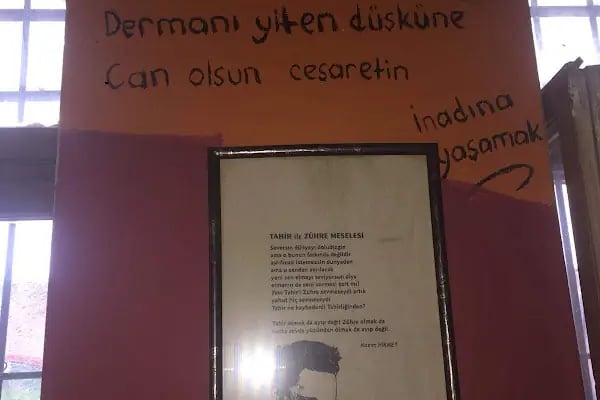 Dermanı yiten düşküne
Can olsun cesaretin
inadına
yaşamak
TAHİR ile ZÜHRE MESELESİ
Seversin dünyayı doludizgin
ama o bunun farkında değildir
ayrılmak istemezsin dünyadan
ama o senden ayrılacak
yani sen elmayı seviyorsun diye
elmanın da seni sevmesi şart mı?
Yani Tahir'i Zühre sevmeseydi artık
yahut hiç sevmeseydi
Tahir ne kaybederdi Tahirliğinden?
Tahir olmak da ayıp değil Zühre olmak da
hatta sevda yüzünden ölmek de ayıp değil.
Nazım HİKMET